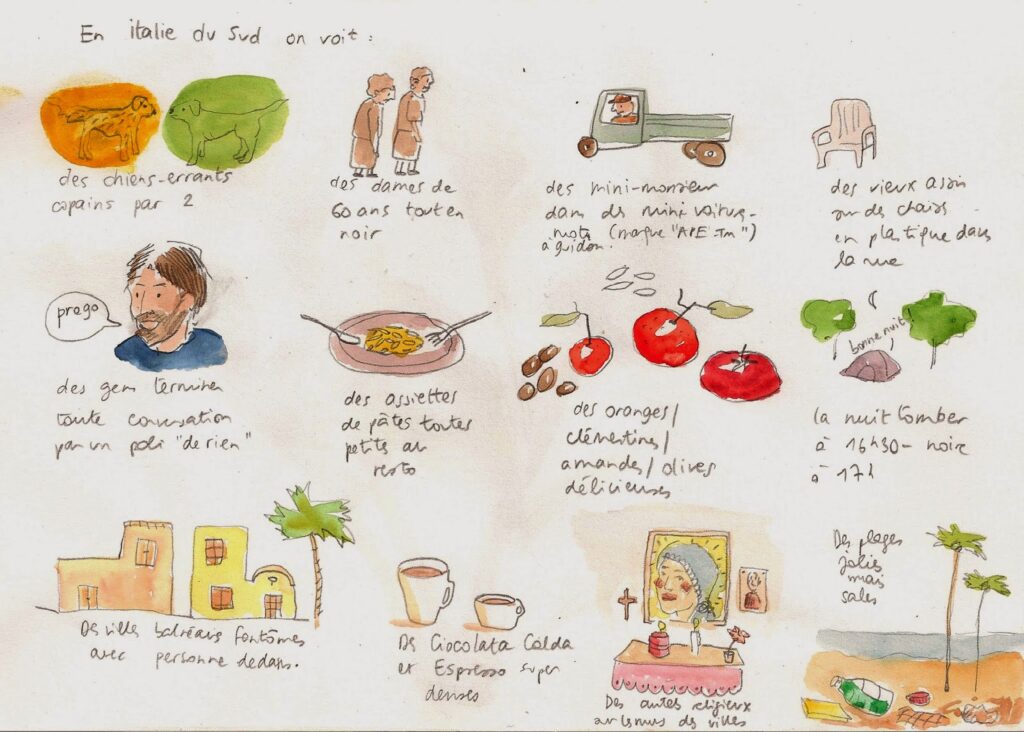 En italie du sud on voit :
des chiens-errants
copains par 2
des dames de
60 ans tout en
noir
des mini-monsieur
dans des mini voitures-
motos (marque "APE-Tm")
à guidon.
des vieux assis
sur des chaises
en plastique dans
la rue
prego
des gens terminer
toute conversation
par un poli "de rien"
des assiettes
de pâtes toutes
petites au
resto
des oranges/
clémentines/
amandes/olives
délicieuses
bonne nuit!
la nuit tomber
à 16h30- noire
à 17h
Des villes balnéaires fantômes
avec personne dedans.
Des Ciocolata Calda
et Espresso super
denses
Des autels religieux
sur les murs des villes
Des plages
jolies
mais
sales